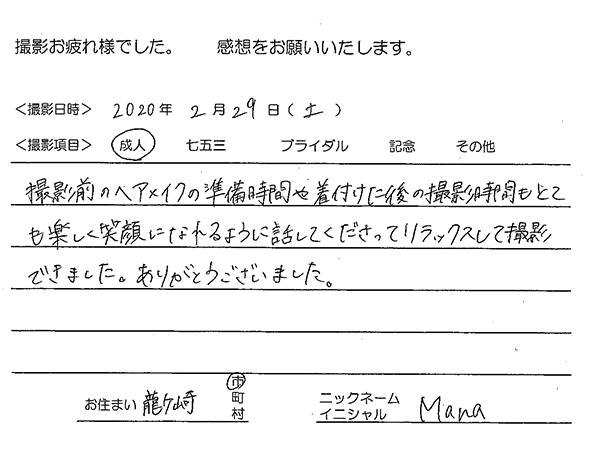 撮影お疲れ様でした。 感想をお願いいたします。
<撮影日時> 2020年 2月29日(土)
<撮影項目> 成人 七五三 ブライダル 記念 その他
撮影前のヘアメイクの準備時間や着付けた後の撮影時間もとて
も楽しく笑顔になれるように話してくださってリラックスして撮影
できました。ありがとうございました。
お住まい 龍ヶ崎 市 町 村 ニックネーム イニシャル Mana